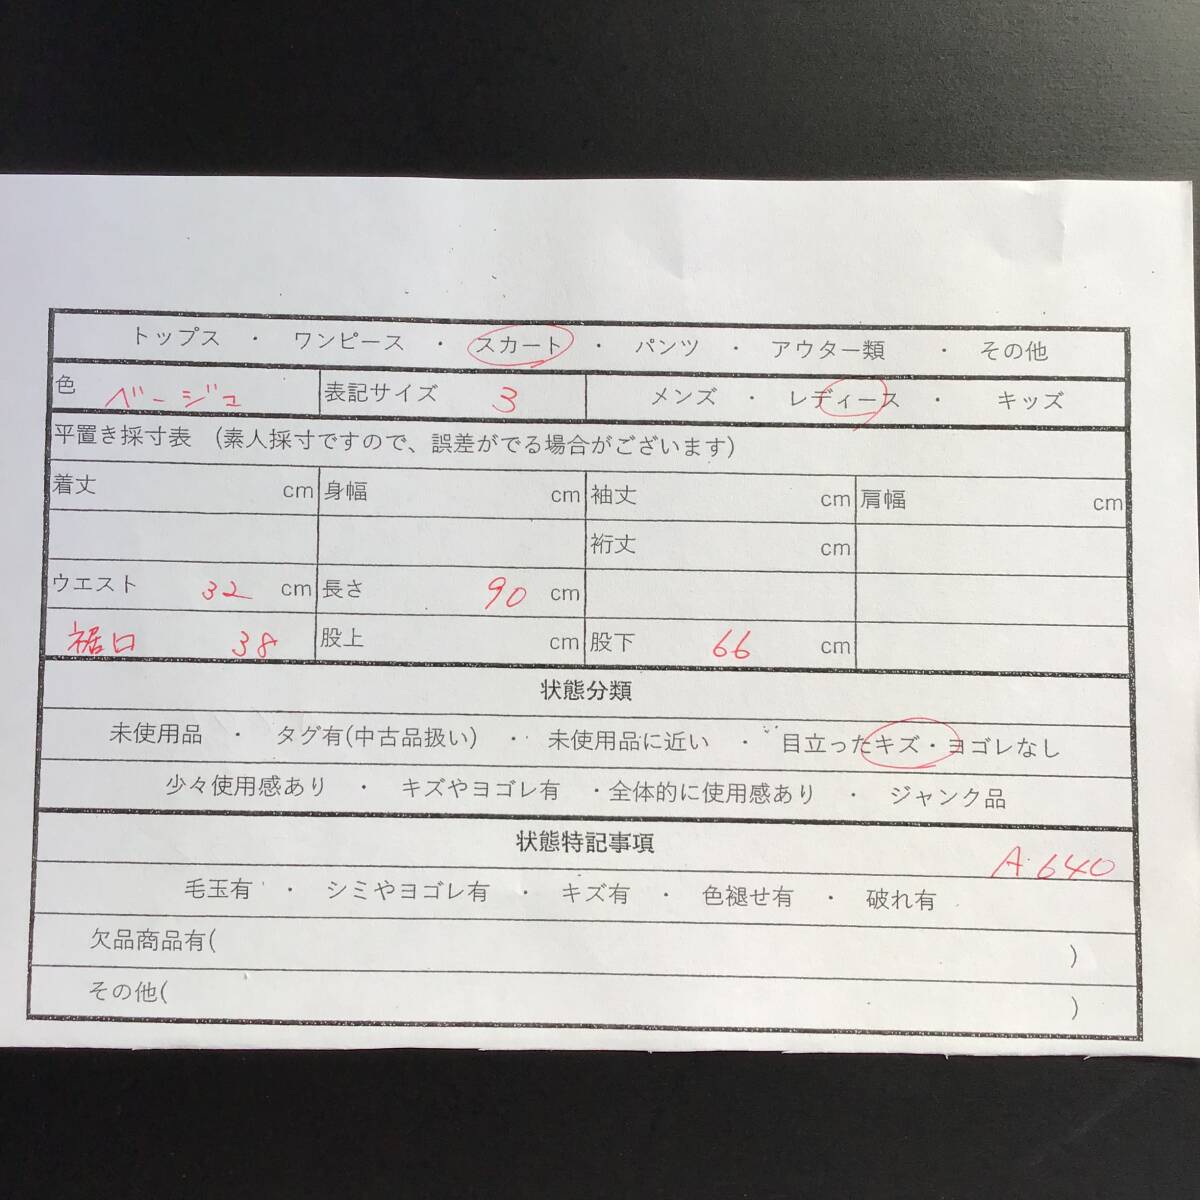 トップス ・ ワンピース ・ スカート ・ パンツ ・ アウター類 ・ その他
色 ベージュ 表記サイズ 3 メンズ ・ レディース ・ キッズ
平置き採寸表 (素人採寸ですので、誤差がでる場合がございます)
着丈 cm 身幅 cm 袖丈 cm 肩幅 cm
裄丈 cm
ウエスト 32 cm 長さ 90 cm
裾口 38 股上 cm 股下 66 cm
状態分類
未使用品 ・ タグ有(中古品扱い) ・ 未使用品に近い ・ 目立ったキズ・ヨゴレなし
少々使用感あり ・ キズやヨゴレ有 ・全体的に使用感あり ・ ジャンク品
状態特記事項
A.640
毛玉有 ・ シミやヨゴレ有 ・ キズ有 ・ 色褪せ有 ・ 破れ有
欠品商品有( )
その他( )